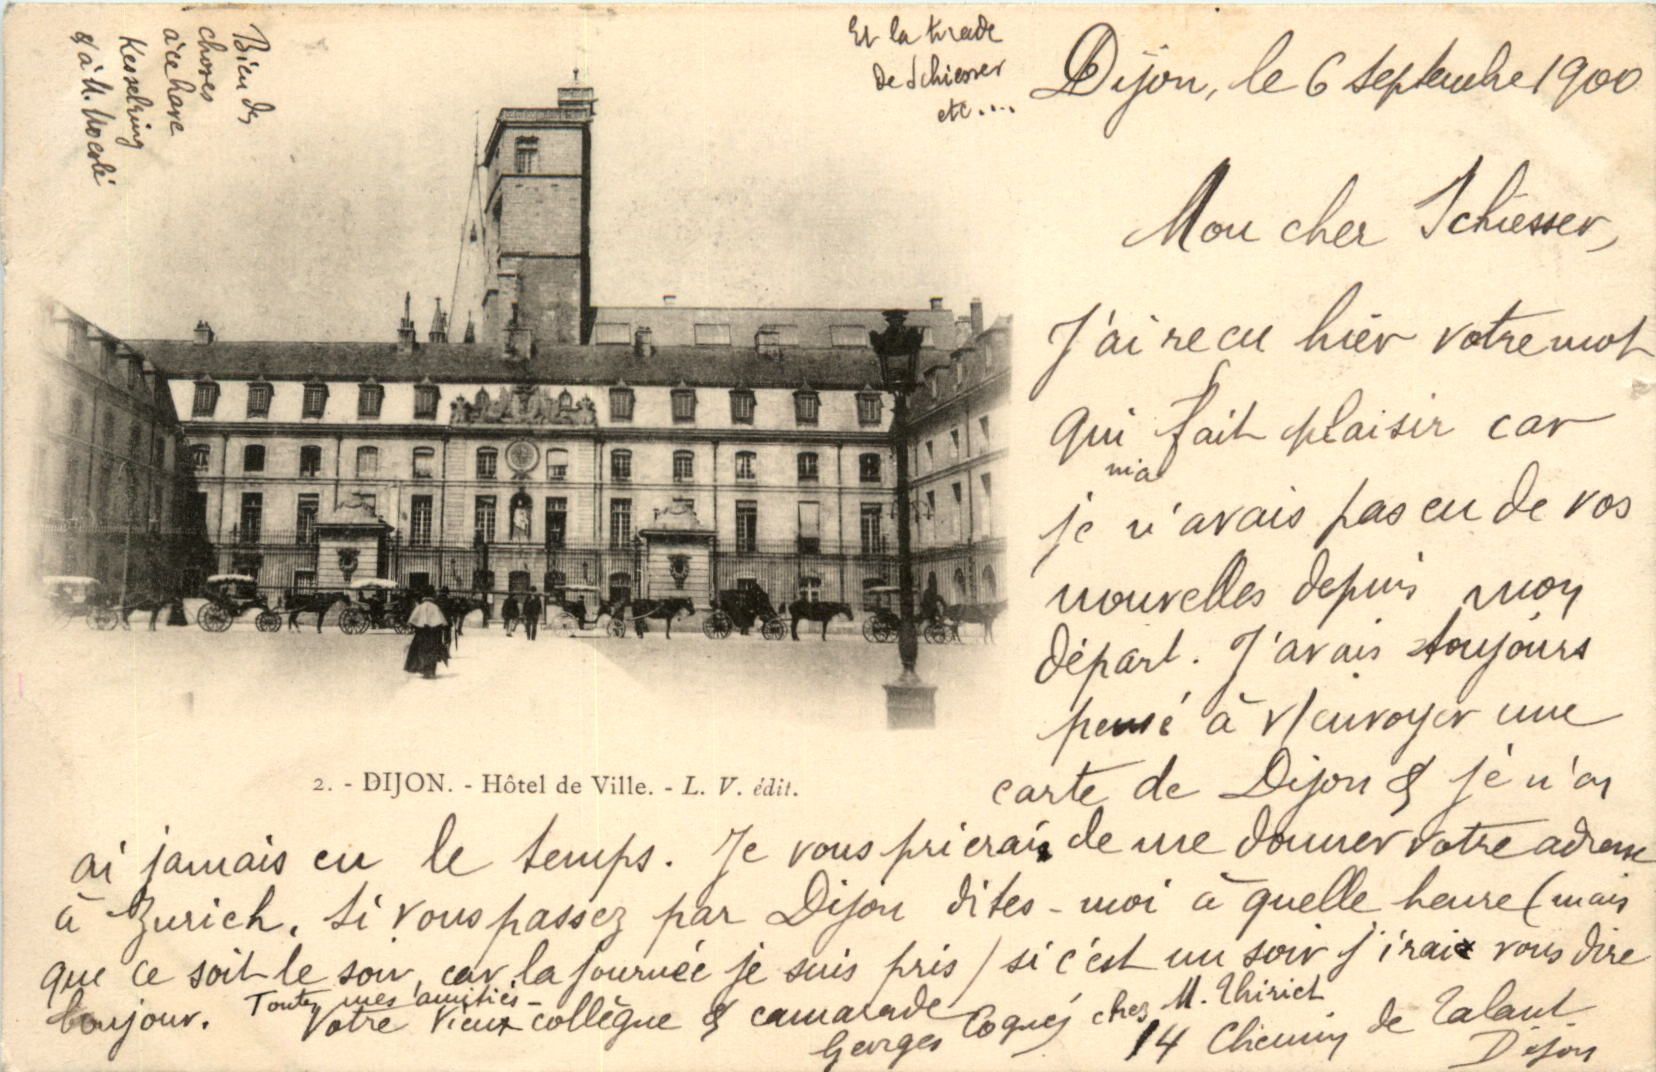 Dijon, le 6 septembre 1900
Mon cher Schiesser,
J'ai recu hier votre mot
qui m'a fait plaisir car
je n'avais pas eu de vos
nouvelles depuis mon
départ. J'avais toujours
pensé à v/envoyer une
carte de Dijon & je n'en
ai jamais eu le temps. Je vous prierais de me donner votre adresse
à Zurich. Si vous passez par Dijon dites-moi à quelle heure (mais
que ce soit le soir, car la journée je suis pris) si c'est un soir j'irais vous dire
bonjour. Toutes mes amitiés -
Votre vieux collègue & camarade
Georges Coqué chez M. Thiriet
14 Chemin de Talant
Dijon
Et la tirade
de Schiesser
etc....
Bien des
choses
à ce have
Kesselring
& à M.
2. - DIJON. - Hôtel de Ville. - L. V. édit.